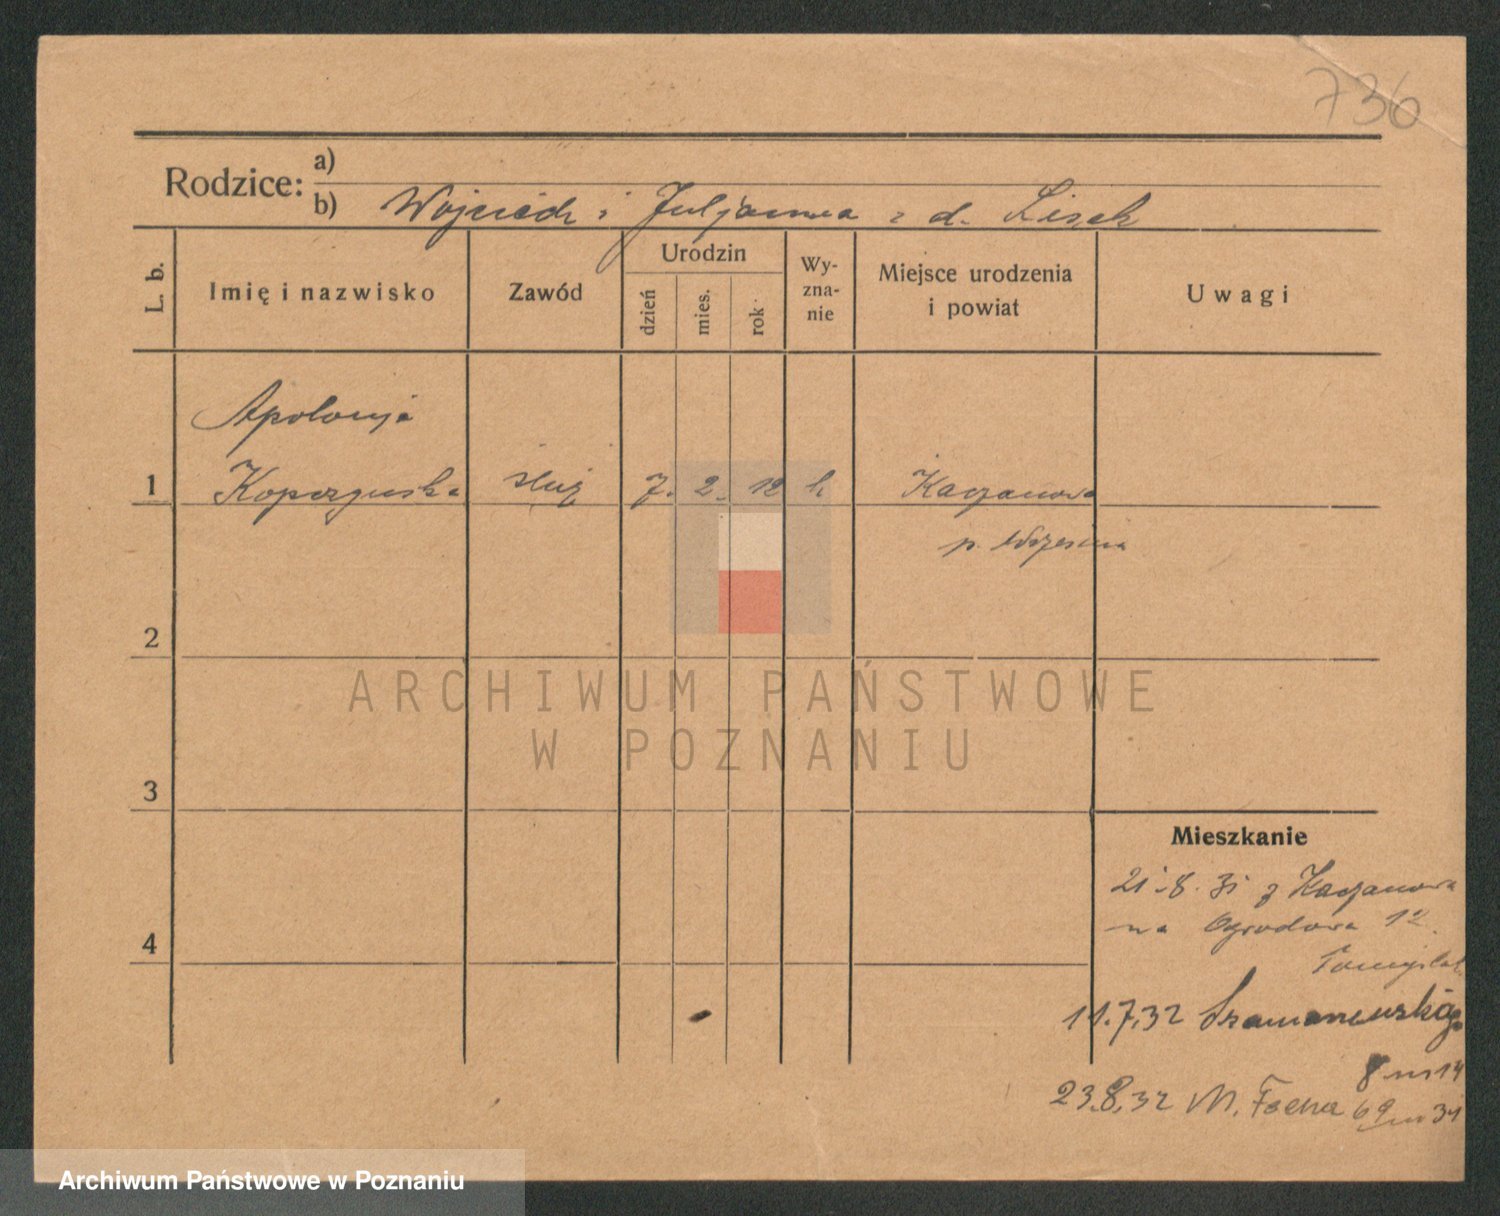 736
Rodzice:
a)
b) Wojciech i Juljanna z d. Lisek
L. b.
Imię i nazwisko
Zawód
Urodzin
dzień
mies.
rok
Wy-
zna-
nie
Miejsce urodzenia
i powiat
Uwagi
Apolonja
1 służ 7. 2. 12 k Kaczanowo
p. Września
2
ARCHIWUM PAŃSTWOWE
W POZNANIU
3
Mieszkanie
21.8.31 z Kaczanowa
na Ogrodowa 12
4
11.7.32
8 m 14
23.8.32 M. Focha 69 m 31
Archiwum Państwowe w Poznaniu